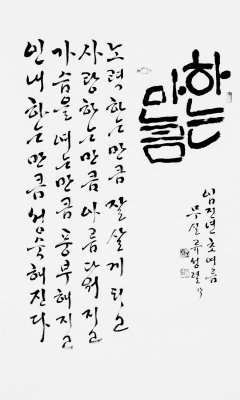 하는
만큼
노력하는만큼 잘살게되고
사랑하는만큼 아름다워지고
가슴을 여는만큼 풍부해지고
인내하는만큼 성숙해진다
임진년초여름
무실류성렬